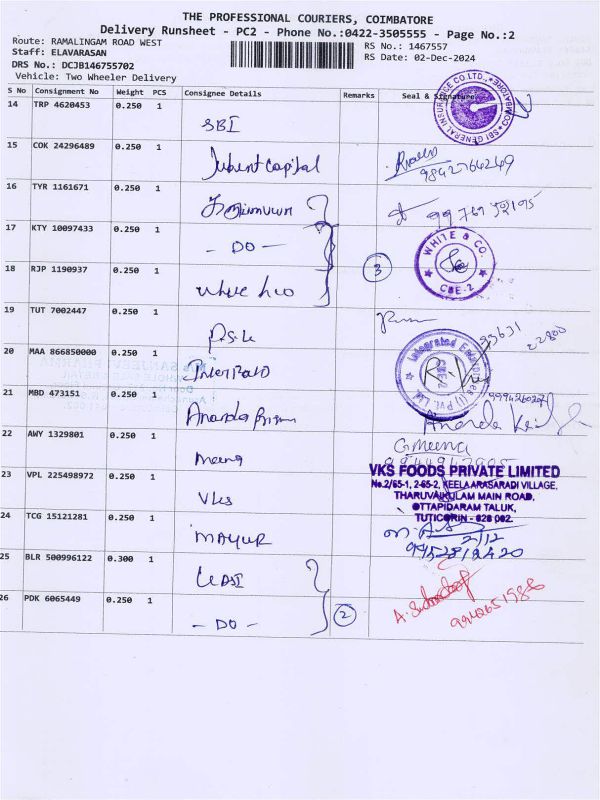 THE PROFESSIONAL COURIERS, COIMBATORE
Delivery Runsheet - PC2 - Phone No.:0422-3505555 - Page No.:2
Route: RAMALINGAM ROAD WEST
RS No.: 1467557
Staff: ELAVARASAN
RS Date: 02-Dec-2024
DRS No.: DCJB146755702
Vehicle: Two Wheeler Delivery
S No Consignment No Weight PCS Consignee Details Remarks Seal & Signature
14 TRP 4620453 0.250 1
SBI
SBI GENERAL INSURANCE CO.LTD., COIMBATORE
15 COK 24296489 0.250 1
Jubent Capital
9842766249
16 TYR 1161671 0.250 1
17 KTY 10097433 0.250 1
- DO -
WHITE & CO.
CBE-2
3
18 RJP 1190937 0.250 1
White &co
19 TUT 7002447 0.250 1
20 MAA 866850000 0.250 1
Integrated Enterprises (I) Pvt. Ltd.
21 MBD 473151 0.250 1
Ananda
22 AWY 1329801 0.250 1
Meena
G Meena
23 VPL 225498972 0.250 1
VKS
VKS FOODS PRIVATE LIMITED
No.2/65-1, 2-65-2, KEELA ARASARADI VILLAGE,
THARUVAIKULAM MAIN ROAD,
OTTAPIDARAM TALUK,
TUTICORIN - 628 002.
24 TCG 15121281 0.250 1
MAYUR
2/12
9952812420
25 BLR 500996122 0.300 1
26 PDK 6065449 0.250 1
- DO -
2
9942651986